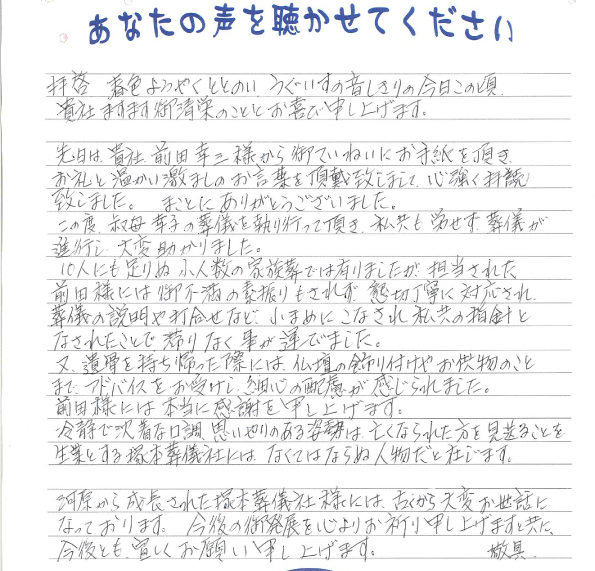 あなたの声を聴かせてください
拝啓 春色ようやくととのい、うぐいすの音しきりの今日この頃、
貴社ますます御清栄のこととお喜び申し上げます。
先日は、貴社 前田幸三様から御ていねいにお手紙を頂き、
お礼と温かい激ましのお言葉を頂戴致しまして、心強く拝読
致しました。 まことにありがとうございました。
この度、叔母 幸子の葬儀を執り行って頂き、私共も労せず葬儀が
進行し、大変助かりました。
10人にも足りぬ小人数の家族葬では有りましたが、担当された
前田様には御不満の素振りもされず、懇切丁寧に対応され、
葬儀の説明や打合せなど、小まめにこなされ私共の指針と
なされたことで滞りなく事が運びました。
又、遺骨を持ち帰った際には、仏壇の飾り付けやお供物のこと
まで、アドバイスをお受けし、細心の配慮が感じられました。
前田様には本当に感謝を申し上げます。
冷静で沈着な口調、思いやりのある姿勢は、亡くなられた方を見送ることを
生業とする塚本葬儀社には、なくてはならぬ人物だと存じます。
河原から成長された塚本葬儀社様には、古くから大変お世話に
なっております。 今後の御発展を心よりお祈り申し上げますと共に、
今後とも、宜しくお願い申し上げます。 敬具.